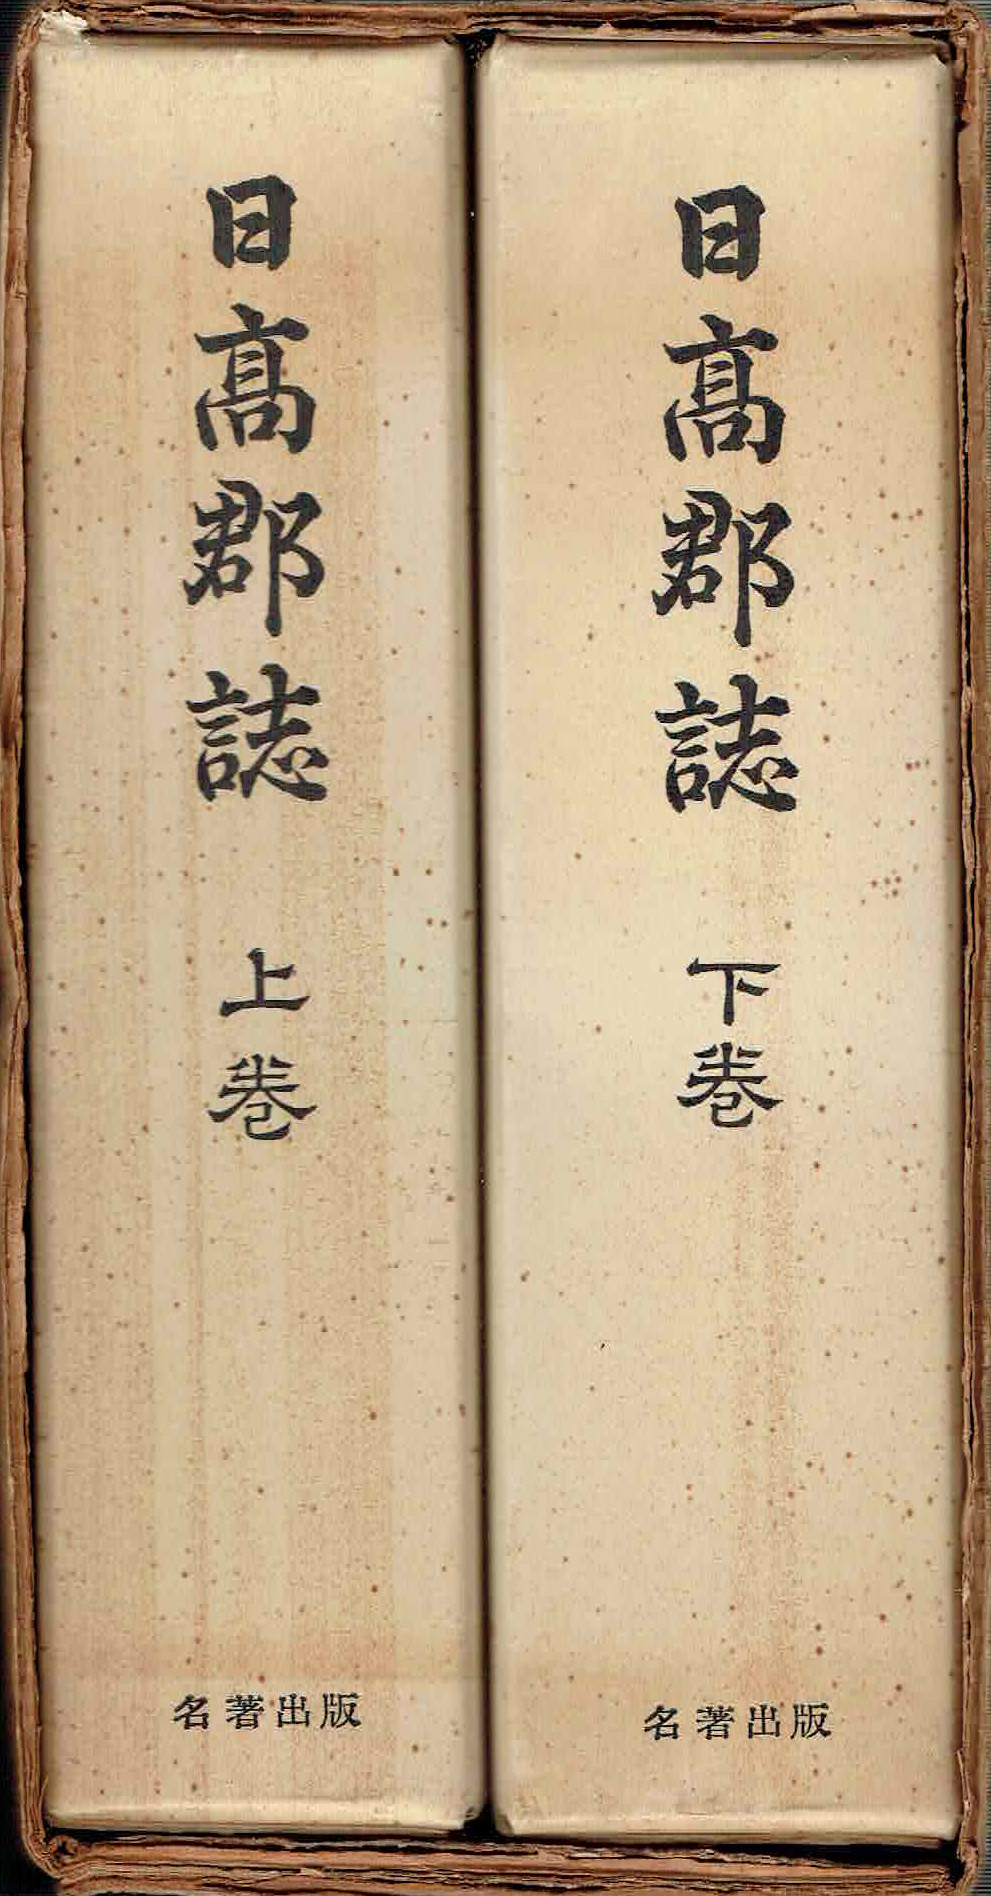 日髙郡誌 上巻
名著出版
日髙郡誌 下巻
名著出版